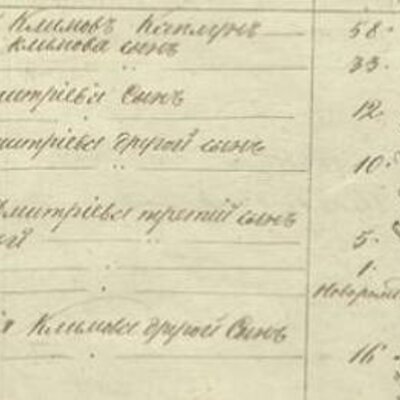 Климовъ Каплунъ 58.
Климова сынъ
33.
митріева сынъ 12
митріева другой сынъ 10.
Дмитріева третий сынъ
ей 5.
1.
Новорож
Климова другой сынъ
16